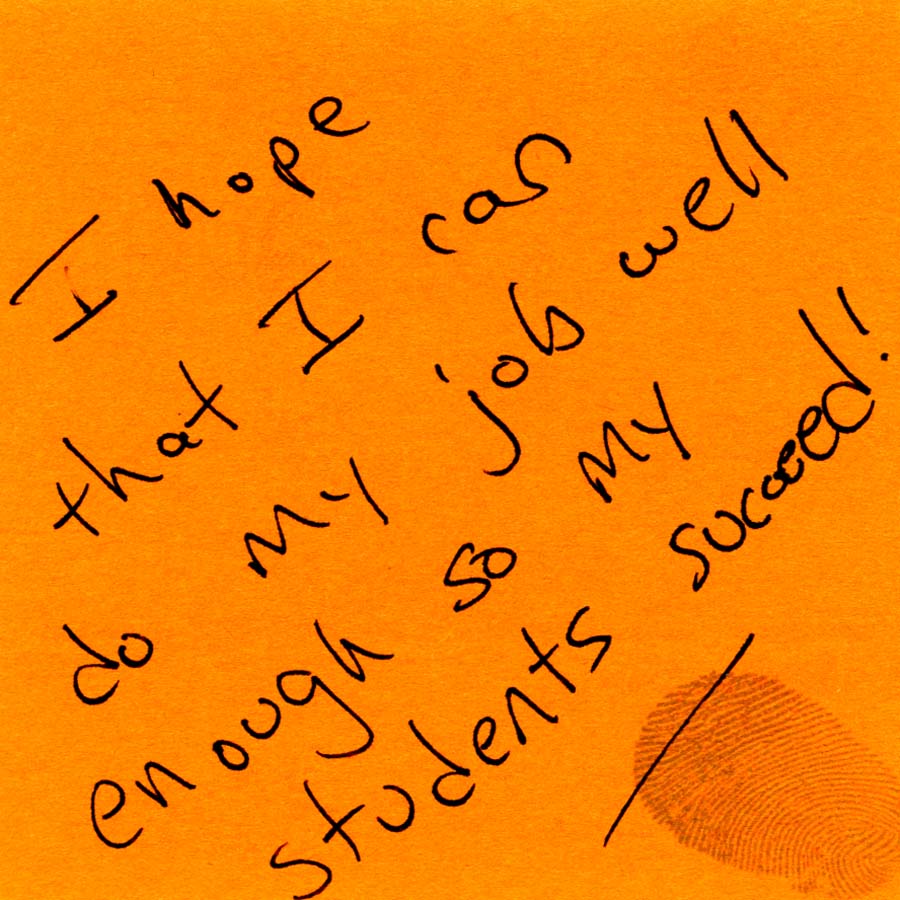 I hope
that I can
do my job well
enough so my
students succeed!